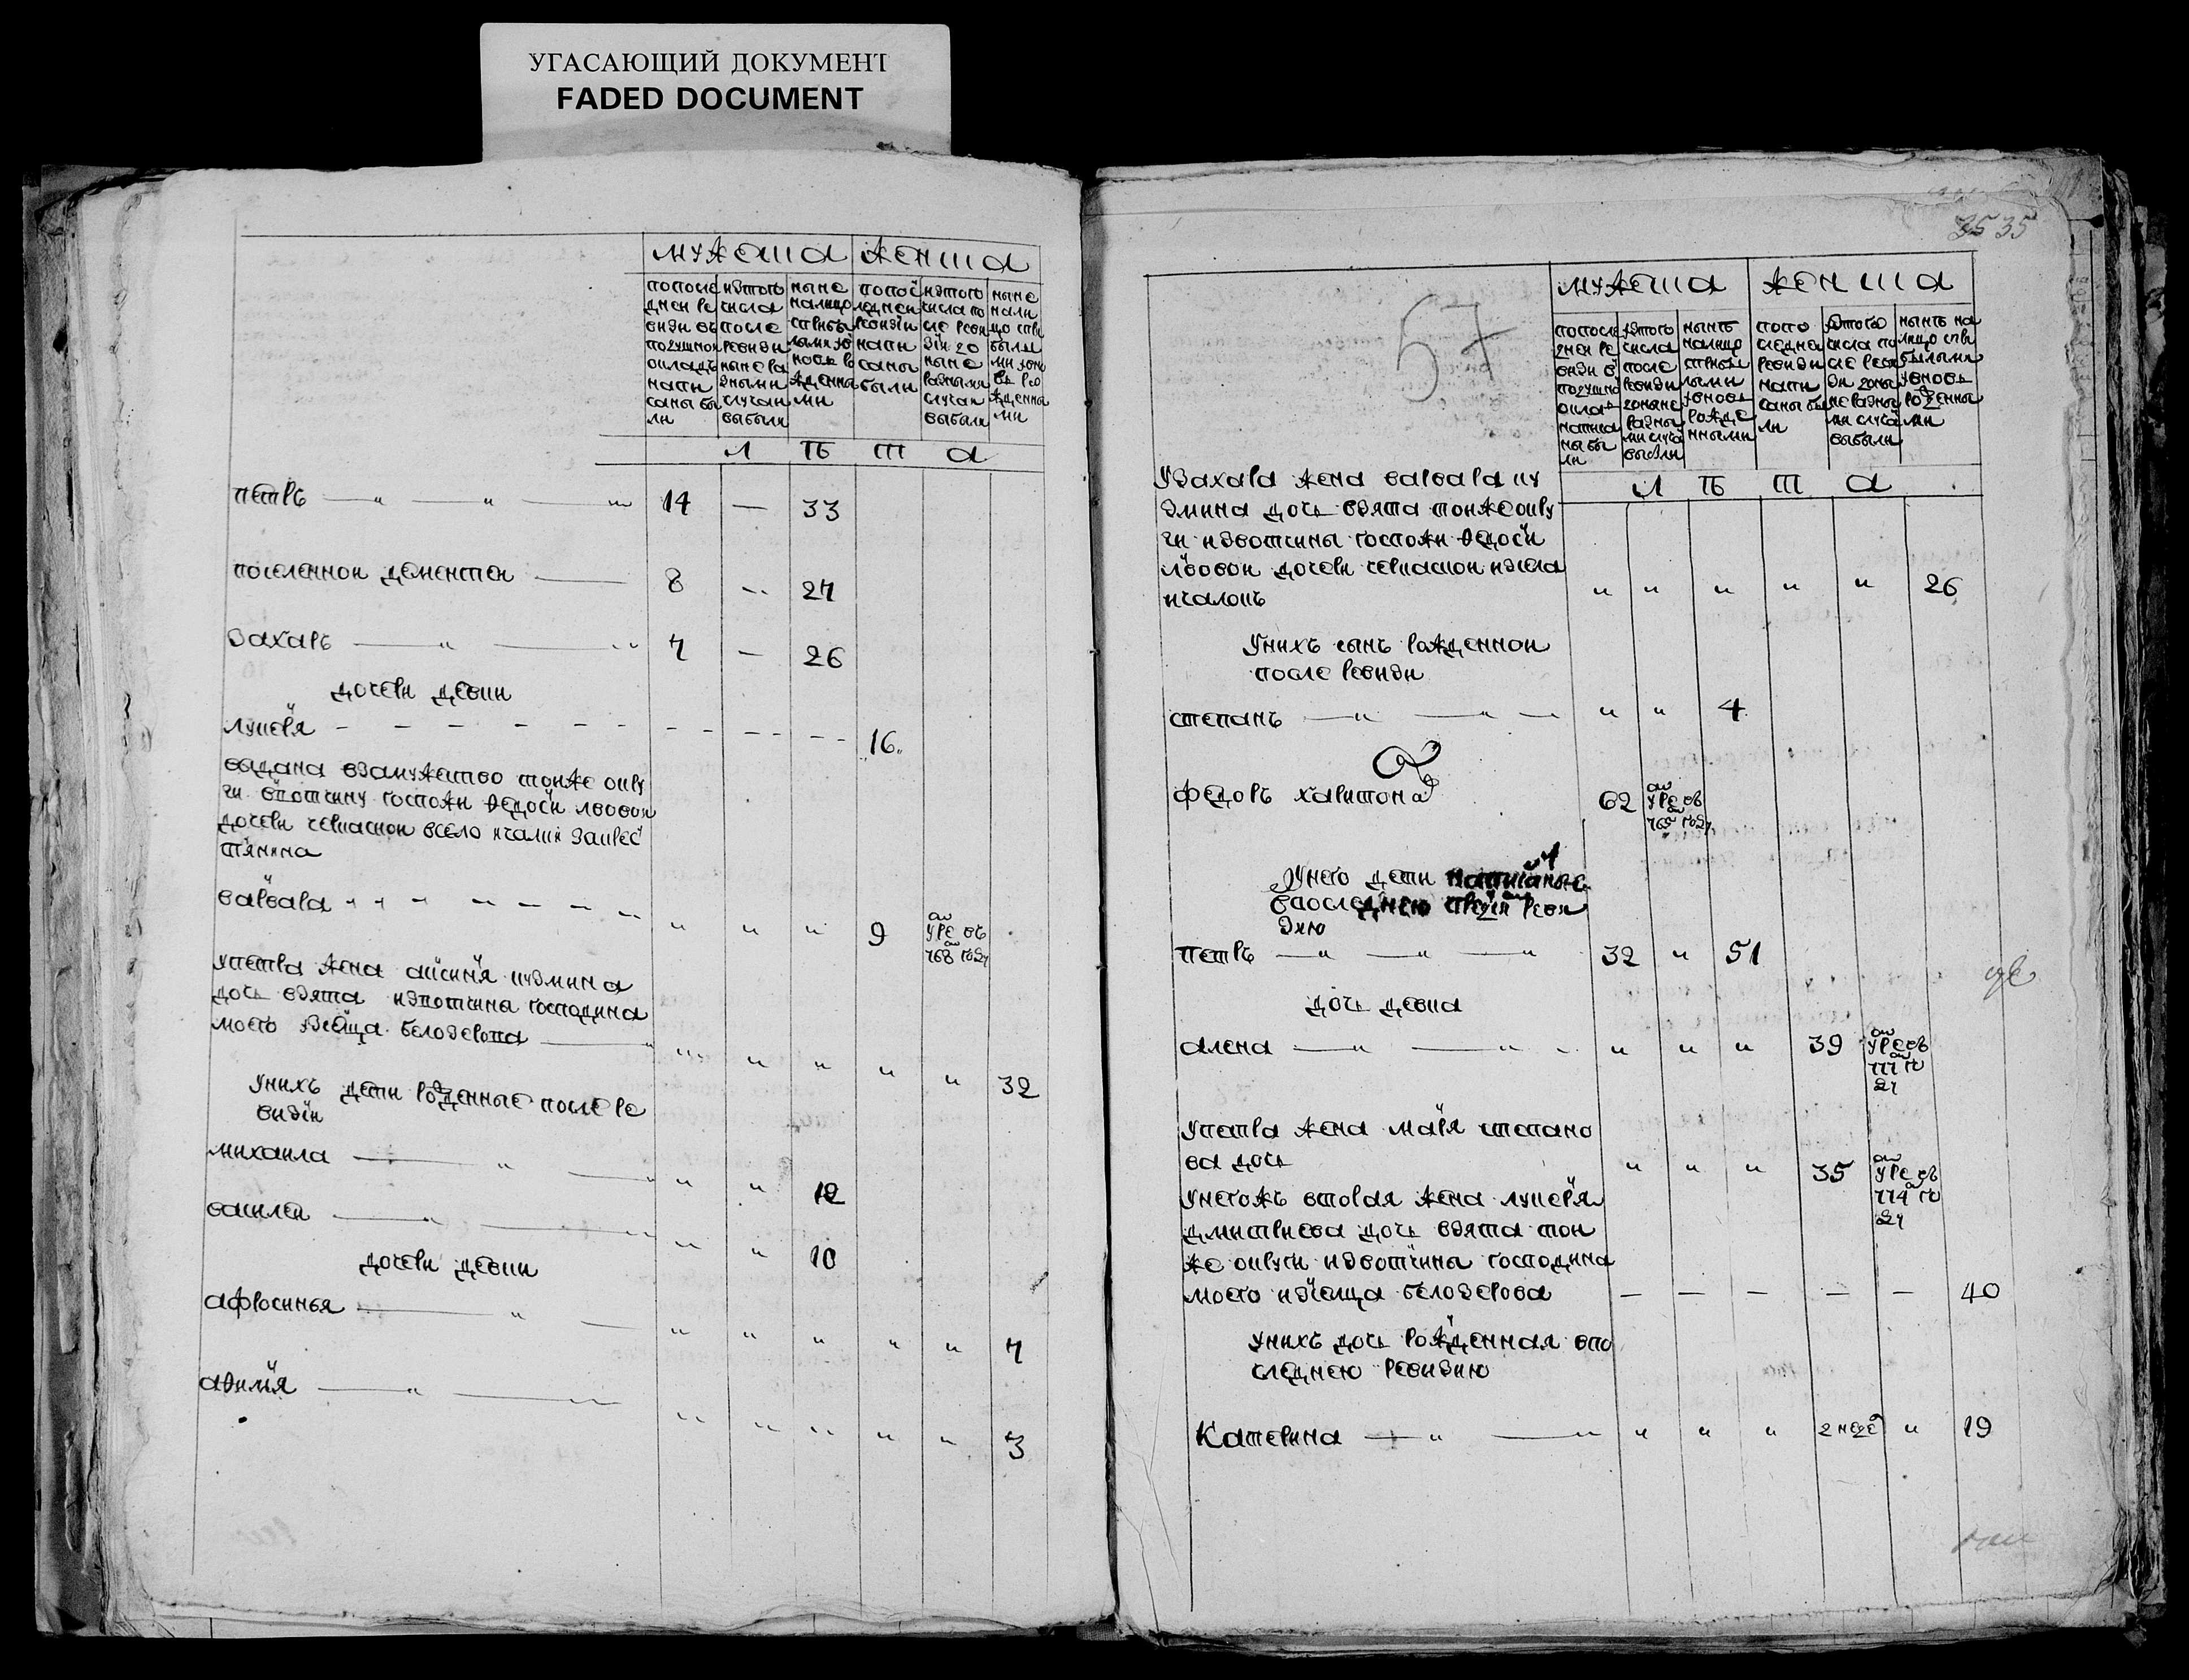 УГАСАЮЩИЙ ДОКУМЕНТ
FADED DOCUMENT
мужеска женска
попосле
дней ре
визи въ
подушной
окладъ
напи
саны бы
ли
изтого
числа
после
ревизи
ныне ра
зными
случаи
выбыли
ныне
налицо
сприбы
лыми
вновь ро
жденны
ми
попос
ледней
ревизiи
напи
саны
были
изтого
числа по
сле реви
зiи до
ныне
разными
случаи
выбыли
ныне
нали
цо спри
былы
ми внов
ь ро
жденны
ми
л ѣ т а
петръ 14 — 33
поселенной дементей 8 — 27
Захаръ 7 — 26
дочери девки
лукерiя 16
выдана взамужество тойже окру
ги вотчину госпожи ѳедосiи лвовой
дочери черкаской всело ичалки закрес
тянина
варвара 9 умре въ 768 году
упетра жена аксинiя кузмина
дочь взята извотчины господина
моего белозерова 32
унихъ дети рожденные после ре
визiи
михаила 12
василей 10
дочери девки
афросинья 7
аѳимiя 3
35 35
57
мужеска женска
попосле
дней ре
визи в
подушно
окладъ
написа
ны бы
ли
изтого
числа
после
ревизи
доныне
разны
ми случа
выбыли
нынѣ
налицо
сприбы
лыми
вновь
рожде
нными
попо
следней
ревизи
напи
саны бы
ли
изтого
числа по
сле реви
зи доны
не разны
ми случа
выбыли
нынѣ на
лицо спри
былыми
вновь
рожденны
ми
л ѣ т а
Узахара жена варвара ку
змина дочь взята тойже окру
ги извотчины госпожи ѳедосiи
лвовой дочери черкаской изсела
ичалокъ 26
Унихъ сынъ рожденной
после ревизи
степанъ 4
федоръ харитонов 62 умре въ 765 году
Унего дети написаные
впоследнею пред сим реви
зию
петръ 32 51
дочь девка
алена 39 умре въ 777 го
ду
Упетра жена марiя степано
ва дочь 35 умре въ 774 го
ду
Унегожъ вторая жена лукерiя
дмитриева дочь взята той
же округи извотчины господина
моего белозерова 40
унихъ дочь рожденная впо
следнею ревизию
Катерина 2 неде 19